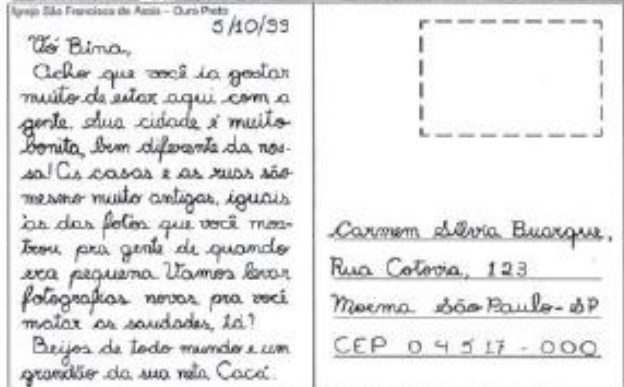 Igreja São Francisco de Assis - Ouro Preto
5/10/99
Vó Bima,
Acho que você ia gostar
muito de estar aqui com a
gente. Sua cidade é muito
bonita, bem diferente da nos-
sa! As casas e as ruas são
mesmo muito antigas, iguais
às das fotos que você mos-
trou pra gente de quando
era pequena. Vamos levar
fotografias novas pra você
matar as saudades, tá?
Beijos de todo mundo e um
grandão da sua neta Cacá.
Carmem Silvia Buarque,
Rua Cotovia, 123
Moema São Paulo - SP
CEP 04517-000